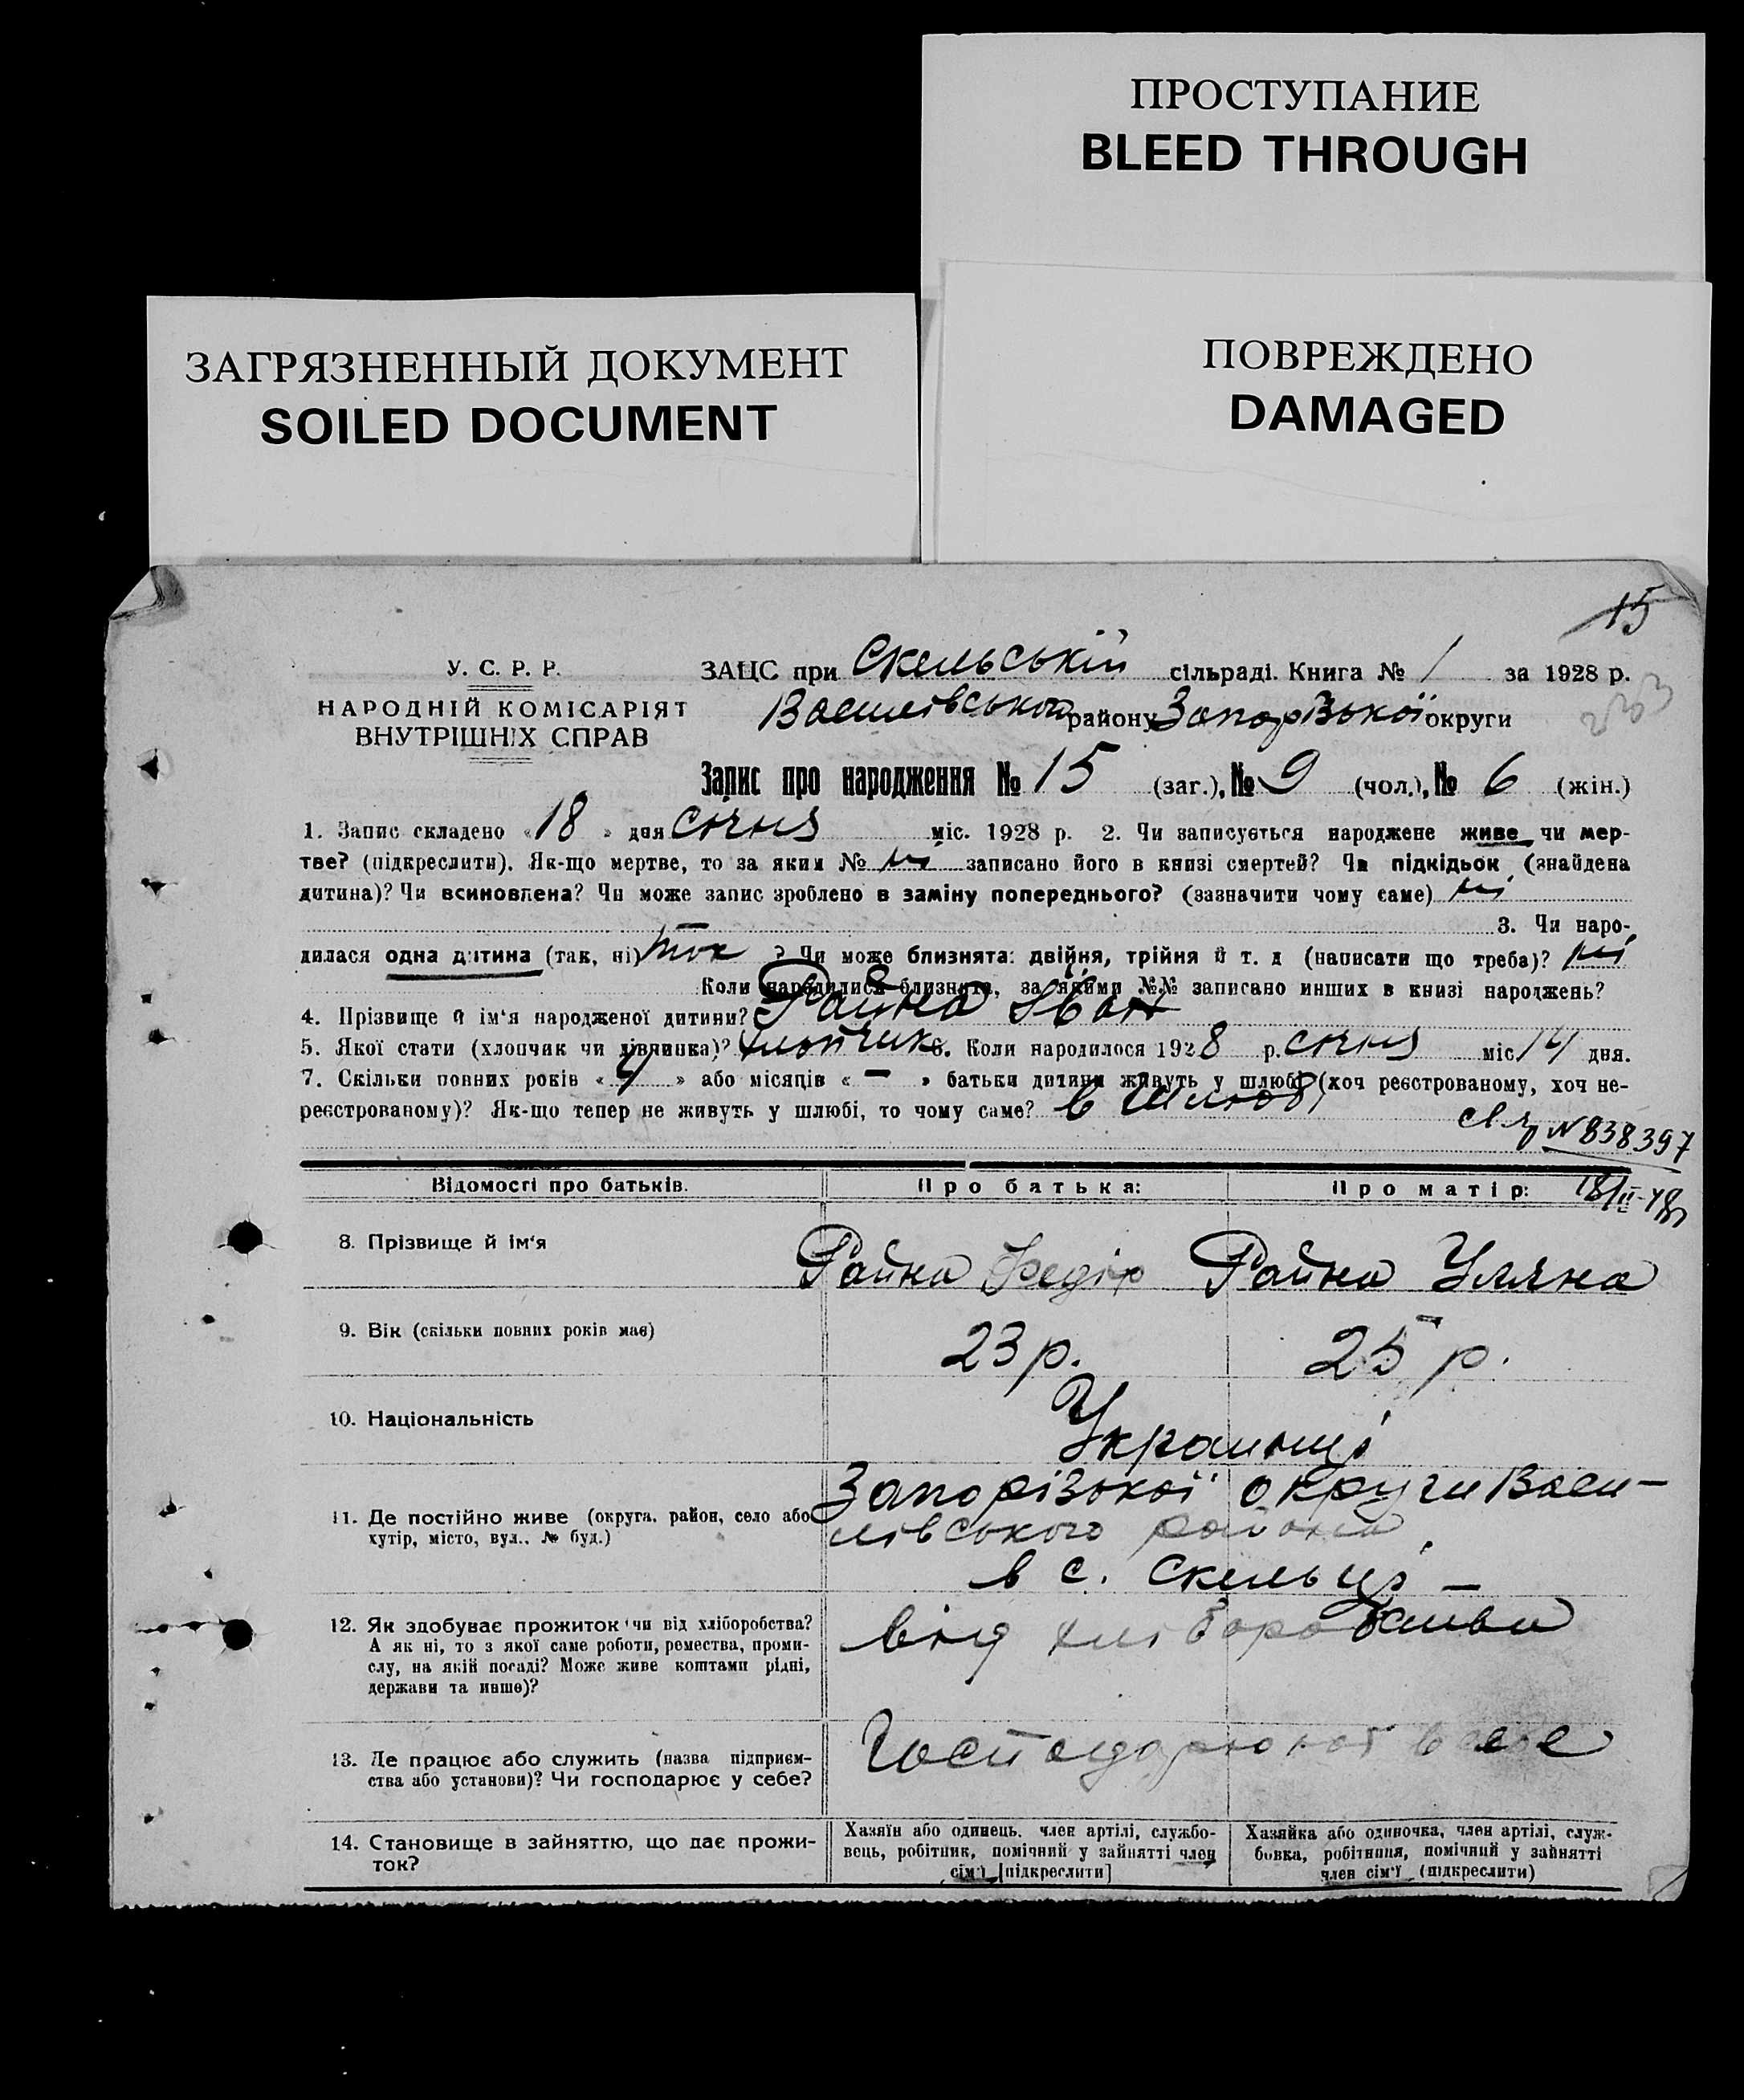 ПРОСТУПАНИЕ
BLEED THROUGH
ЗАГРЯЗНЕННЫЙ ДОКУМЕНТ
SOILED DOCUMENT
ПОВРЕЖДЕНО
DAMAGED
15
У. С. Р. Р.
НАРОДНІЙ КОМІСАРІЯТ
ВНУТРІШНІХ СПРАВ
ЗАЦС при Скельській сільраді. Книга № 1 за 1928 р.
Василівського району Запорізької округи
233
Запис про народження № 15 (заг.), № 9 (чол.), № 6 (жін.)
1. Запис складено « 18 » дня січня міс. 1928 р. 2. Чи записується народжене живе чи мер-
тве? (підкреслити). Як-що мертве, то за яким № ні записано його в книзі смертей? Чи підкідьок (знайдена
дитина)? Чи всиновлена? Чи може запис зроблено в заміну попереднього? (зазначити чому саме) ні
3. Чи наро-
дилася одна дитина (так, ні) так ? Чи може близнята: двійня, трійня й т. д (написати що треба)? ні
Коли народилися близнята, за якими №№ записано инших в книзі народжень?
4. Прізвище й ім'я народженої дитини? Райна Іван
5. Якої стати (хлопчик чи дівчинка)? хлопчик 6. Коли народилося 1928 р. січня міс 14 дня.
7. Скільки повних років « 4 » або місяців « — » батьки дитини живуть у шлюбі (хоч реєстрованому, хоч не-
реєстрованому)? Як-що тепер не живуть у шлюбі, то чому саме? в шлюбі
N 838397
Відомості про батьків.
Про батька:
Про матір:
18/II-48
8. Прізвище й ім'я
Райна Федір
Райна Уляна
9. Вік (скільки повних років має)
23 р.
25 р.
10. Національність
Українці
11. Де постійно живе (округа, район, село або
хутір, місто, вул., № буд.)
Запорізької округи Васи-
лівського района
в с. Скельці —
12. Як здобуває прожиток чи від хліборобства?
А як ні, то з якої саме роботи, ремества, проми-
слу, на якій посаді? Може живе коштами рідні,
держави та инше)?
від хліборобства
13. Де працює або служить (назва підприєм-
ства або установи)? Чи господарює у себе?
Господарюют в себе
14. Становище в зайняттю, що дає прожи-
ток?
Хазяїн або одинець, член артілі, службо-
вець, робітник, помічний у зайнятті член
сім'ї [підкреслити]
Хазяйка або одиночка, член артілі, служ-
бовка, робітниця, помічний у зайнятті
член сім'ї (підкреслити)